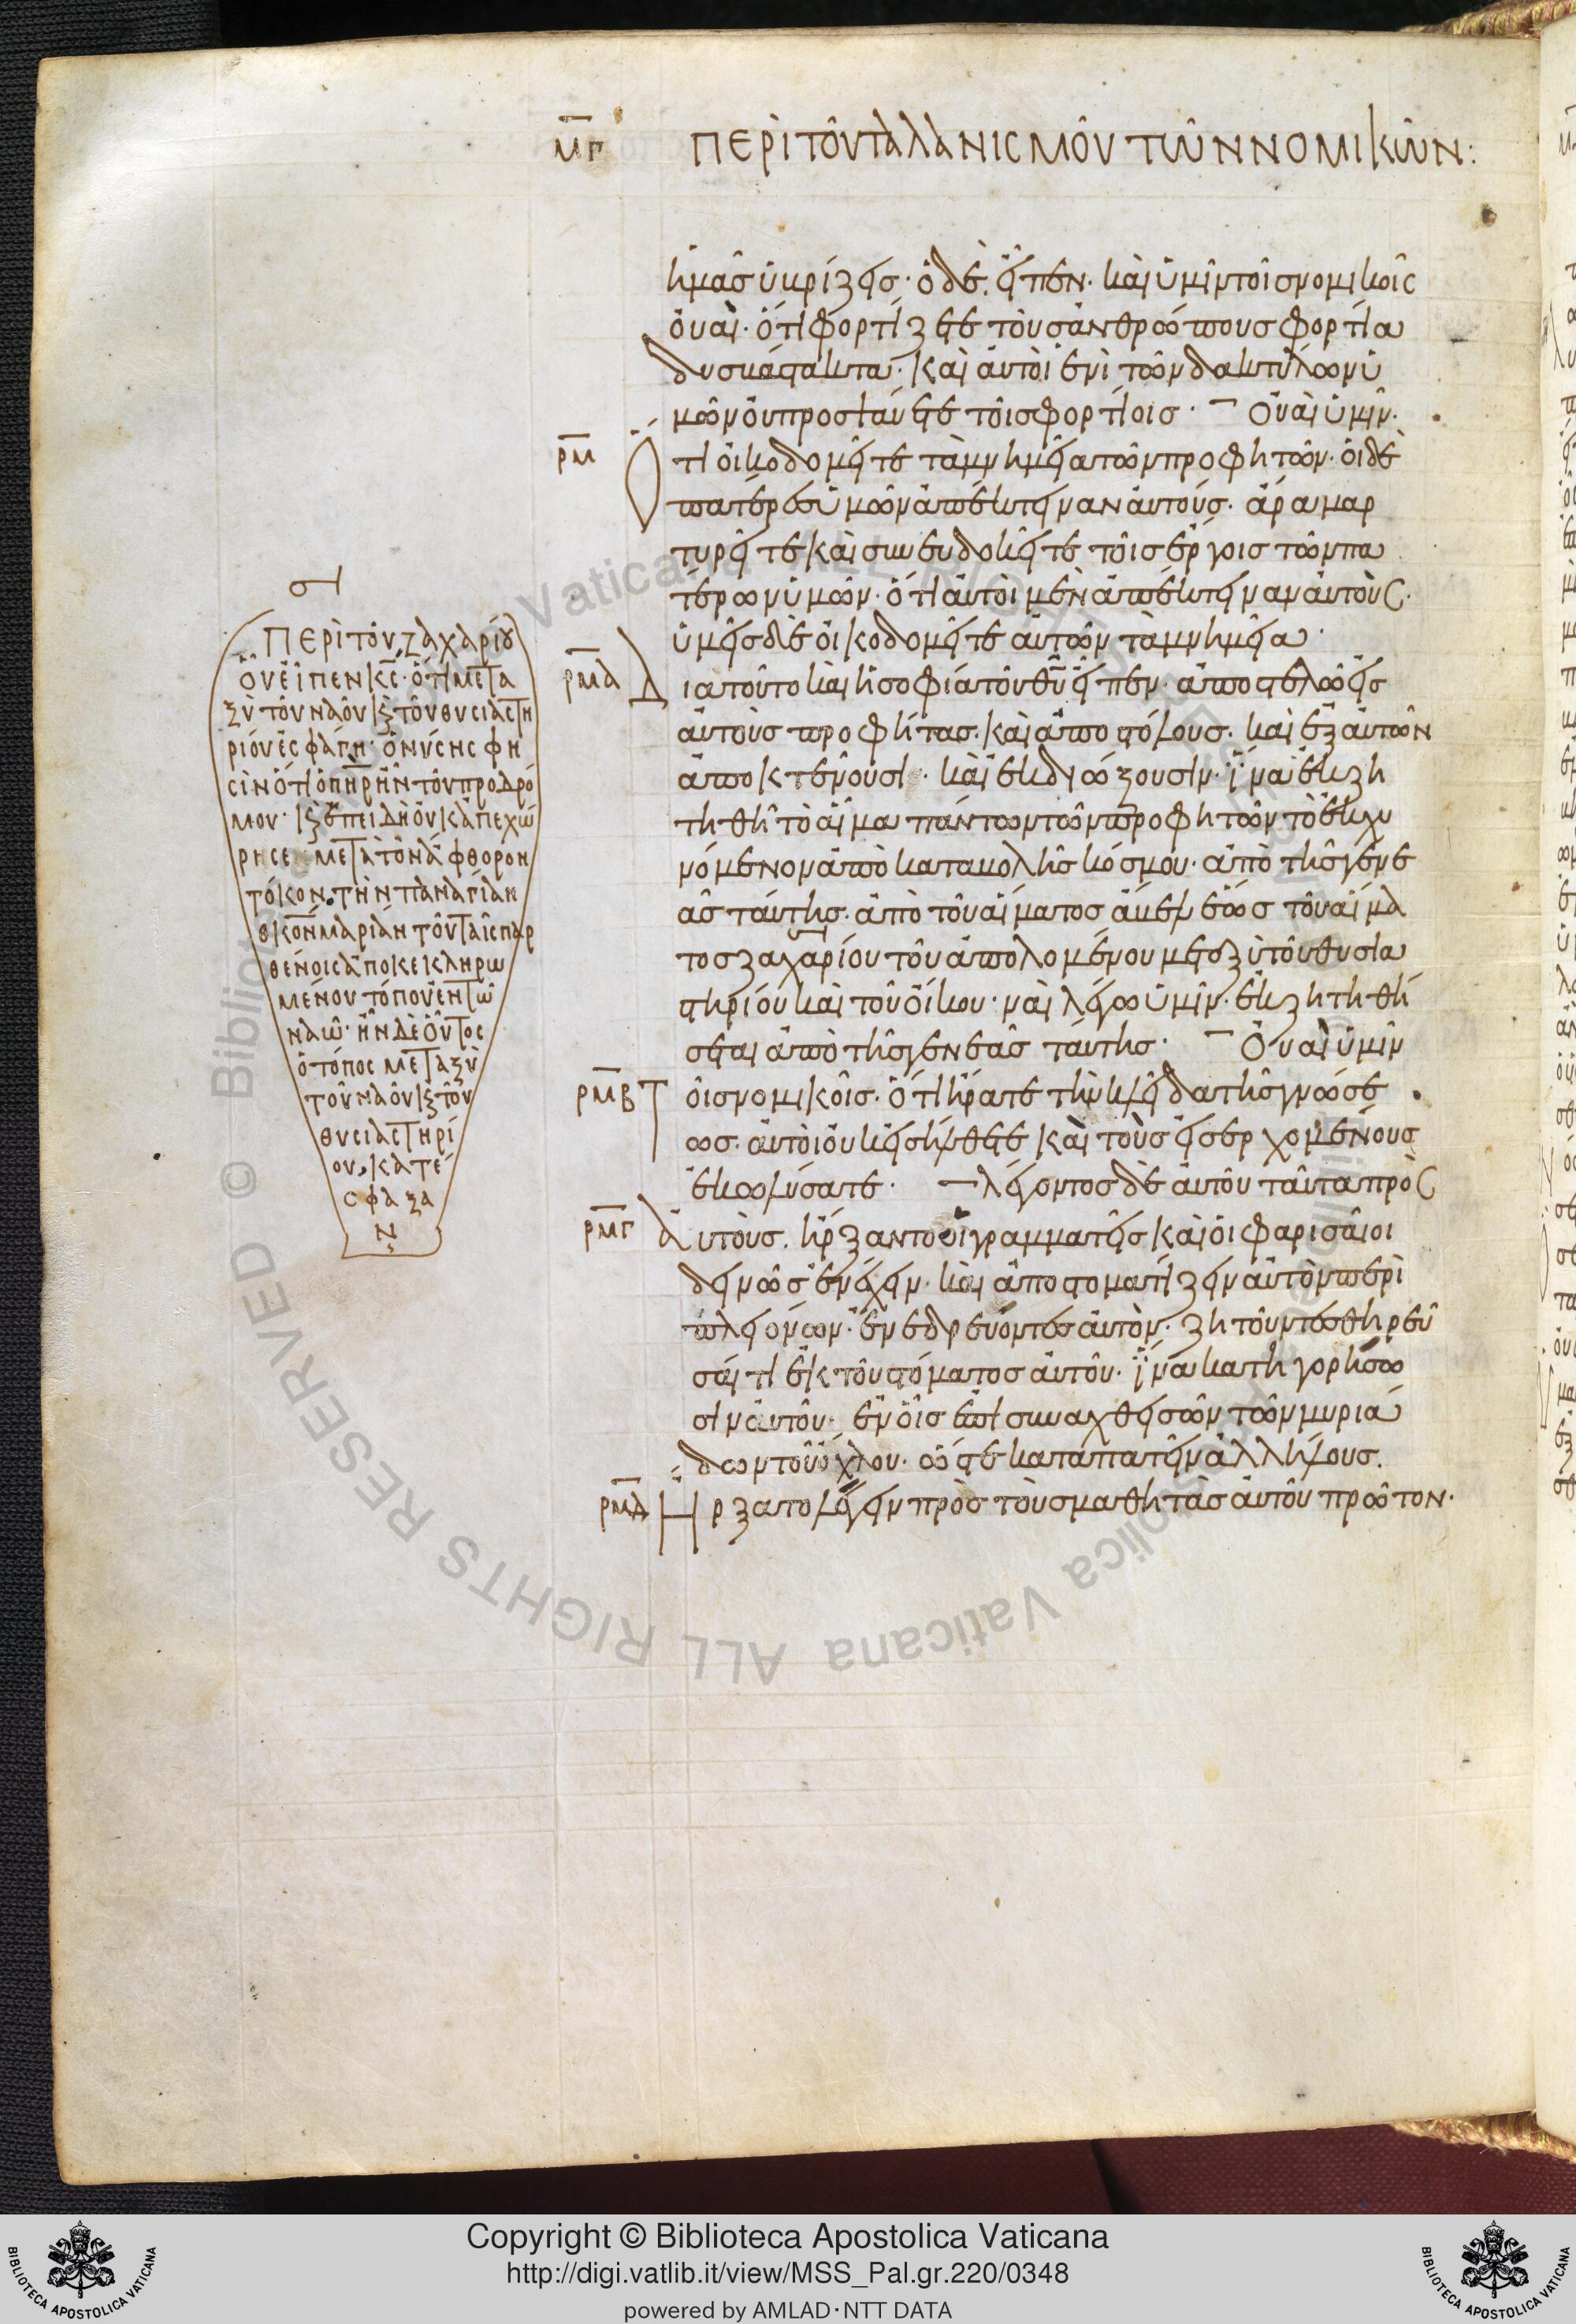 μγ ΠΕΡῚ ΤΟΥ͂ ΤΑΛΑΝΙΣΜΟΥ͂ ΤΩ͂Ν ΝΟΜΙΚΩ͂Ν:
ἡμᾶς ὑβρίζεις· ὁ δὲ εἶπεν· καὶ ὑμῖν τοῖς νομικοῖς
οὐαὶ· ὅτι φορτίζετε τοὺς ἀνθρώπους φορτία
δυσβάστακτα· καὶ αὐτοὶ ἑνὶ τῶν δακτύλων ὑ
μῶν οὐ προσψαύετε τοῖς φορτίοις· Οὐαὶ ὑμῖν·
ρμ Ὅτι οἰκοδομεῖτε τὰ μνημεῖα τῶν προφητῶν· οἱ δὲ
πατέρες ὑμῶν ἀπέκτειναν αὐτούς· ἄρα μαρ
τυρεῖτε καὶ συνευδοκεῖτε τοῖς ἔργοις τῶν πα
τέρων ὑμῶν· ὅτι αὐτοὶ μὲν ἀπέκτειναν αὐτοὺς·
ὑμεῖς δὲ οἰκοδομεῖτε αὐτῶν τὰ μνημεῖα·
ρμα Διατοῦτο καὶ ἡ σοφία τοῦ θυ εἶπεν· ἀποστελῶ εἰς
αὐτοὺς προφήτας· καὶ ἀποστόλους· καὶ ἐξ αὐτῶν
ἀποκτενοῦσι· καὶ ἐκδιώξουσιν· ἵνα ἐκζη
τηθῇ τὸ αἷμα πάντων τῶν προφητῶν τὸ ἐκχυ
νόμενον ἀπὸ καταβολῆς κόσμου· ἀπὸ τῆς γενε
ᾶς ταύτης· ἀπὸ τοῦ αἵματος ἄβελ ἕως τοῦ αἵμα
τος ζαχαρίου τοῦ ἀπολομένου μεταξὺ τοῦ θυσια
στηρίου καὶ τοῦ οἴκου· ναὶ λέγω ὑμῖν· ἐκζητηθή
σεται ἀπὸ τῆς γενεᾶς ταύτης· Οὐαὶ ὑμῖν
ρμβ Τοῖς νομικοῖς· ὅτι ἤρατε τὴν κλεῖδα τῆς γνώσε
ως· αὐτοὶ οὐκ εἰσήλθετε καὶ τοὺς εἰσερχομένους
ἐκωλύσατε· λέγοντος δὲ αὐτοῦ ταῦτα πρὸς
ρμγ Αὐτοὺς· ἤρξαντο οἱ γραμματεῖς καὶ οἱ φαρισαῖοι
δεινῶς ἐνέχειν· καὶ ἀποστοματίζειν αὐτὸν περὶ
πλειόνων· ἐνεδρεύοντες αὐτὸν· ζητοῦντες θηρεῦ
σαί τι ἐκ τοῦ στόματος αὐτοῦ· ἵνα κατηγορήσω
σιν αὐτοῦ· ἐν οἷς ἐπισυναχθεισῶν τῶν μυριά
δων τοῦ ὄχλου· ὥστε καταπατεῖν ἀλλήλους·
ρμδ Ἤρξατο λέγειν πρὸς τοὺς μαθητὰς αὐτοῦ πρῶτον·
ΠΕΡῚ ΤΟΥ͂ ΖΑΧΑΡΊΟΥ
ὃν εἶπεν κς· ὅτι μετα
ξὺ τοῦ ναοῦ κ τοῦ θυσιαστη
ρίου ἐσφάγη· ὁ νύσης φη
σὶν ὅτι ὁ πηρ ἦν τοῦ προδρό
μου· κ ἐπειδὴ οὐκ ἀπεχώ
ρησε μετὰ τὸν ἄφθορον
τόκον, τὴν παναγίαν
θκον μαρίαν τοῦ ταῖς παρ
θένοις ἀποκεκληρω
μένου τόπου ἐν τῶ
ναῶ· ἦν δὲ οὗτος
ὁ τόπος μεταξὺ
τοῦ ναοῦ κ τοῦ
θυσιαστηρί
ου, κατέ
σφαξα
ν